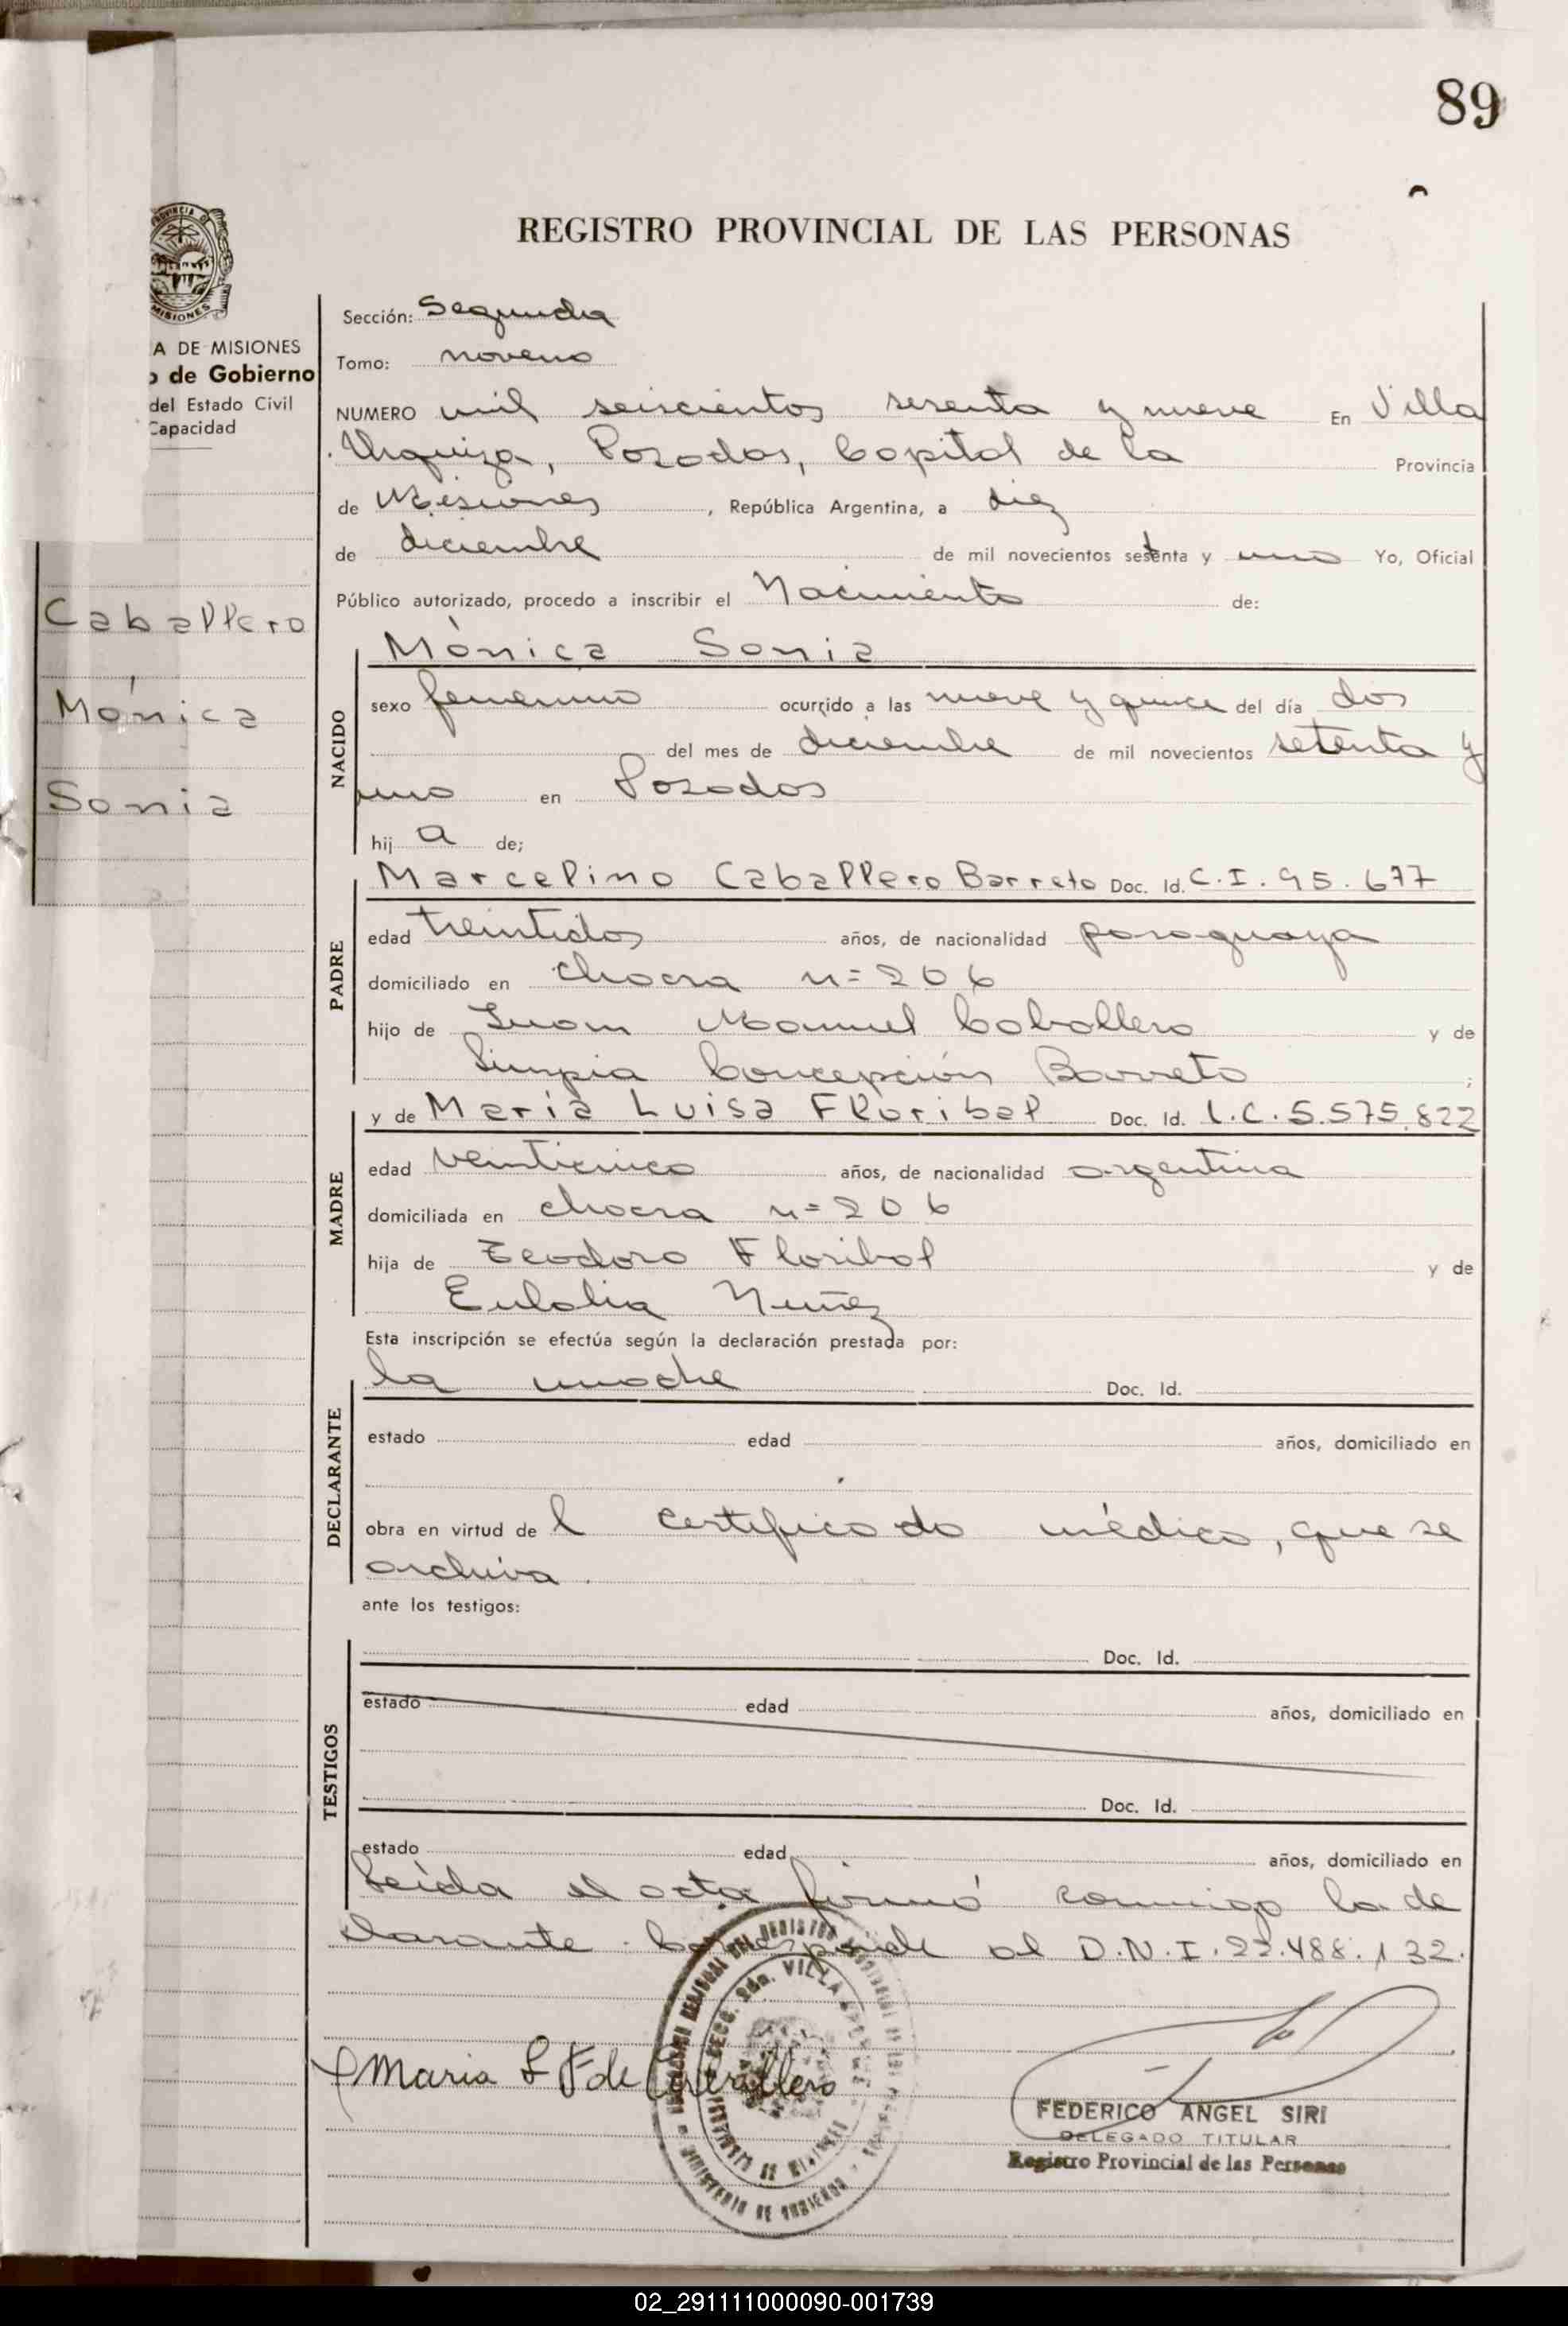 89
REGISTRO PROVINCIAL DE LAS PERSONAS
MISIONES
A DE MISIONES
o de Gobierno
del Estado Civil
Capacidad
Sección: Segunda
Tomo: noveno
NUMERO mil seiscientos sesenta y nueve En Villa
Urquiza, Posadas, Capital de la Provincia
de Misiones, República Argentina, a diez
de diciembre de mil novecientos setenta y uno Yo, Oficial
Público autorizado, procedo a inscribir el Nacimiento de:
Caballero
Mónica
Sonia
NACIDO
Mónica Sonia
sexo femenino ocurrido a las nueve y quince del día dos
del mes de diciembre de mil novecientos setenta y
uno en Posadas
hij a de;
PADRE
Marcelino Caballero Barreto Doc. Id. C.I. 95.677
edad treintidos años, de nacionalidad paraguaya
domiciliado en chacra n=206
hijo de Juan Manuel Caballero y de
Limpia Concepción Barreto ;
MADRE
y de María Luisa Floribal Doc. Id. L.C. 5.575.822
edad veinticinco años, de nacionalidad argentina
domiciliada en chacra n=206
hija de Teodoro Floribal y de
Eulalia Nuñez
Esta inscripción se efectúa según la declaración prestada por:
DECLARANTE
la madre Doc. Id.
estado edad años, domiciliado en
obra en virtud de l certificado médico, que se
archiva.
ante los testigos:
TESTIGOS
Doc. Id.
estado edad años, domiciliado en
Doc. Id.
estado edad años, domiciliado en
Leída el acta firmó conmigo la de
clarante. Corresponde al D.N.I. 22.488.132.
Maria L F de Caballero
SECC. 2da. VILLA
MINISTERIO DE GOBIERNO
FEDERICO ANGEL SIRI
DELEGADO TITULAR
Registro Provincial de las Personas
02_291111000090-001739